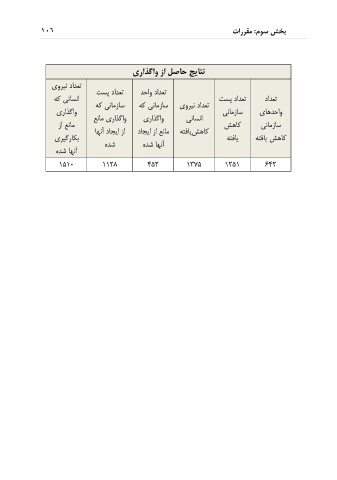 بخش سوم: مقررات ۱۰۶
نتایج حاصل از واگذاری
تعداد
واحدهای
سازمانی
کاهش یافته
تعداد پست
سازمانی
کاهش
یافته
تعداد نیروی
انسانی
کاهش‌یافته
تعداد واحد
سازمانی که
واگذاری
مانع از ایجاد
آنها شده
تعداد پست
سازمانی که
واگذاری مانع
از ایجاد آنها
شده
تعداد نیروی
انسانی که
واگذاری
مانع از
بکارگیری
آنها شده
۶۴۲ ۱۲۵۱ ۱۳۷۵ ۴۵۲ ۱۱۲۸ ۱۵۱۰